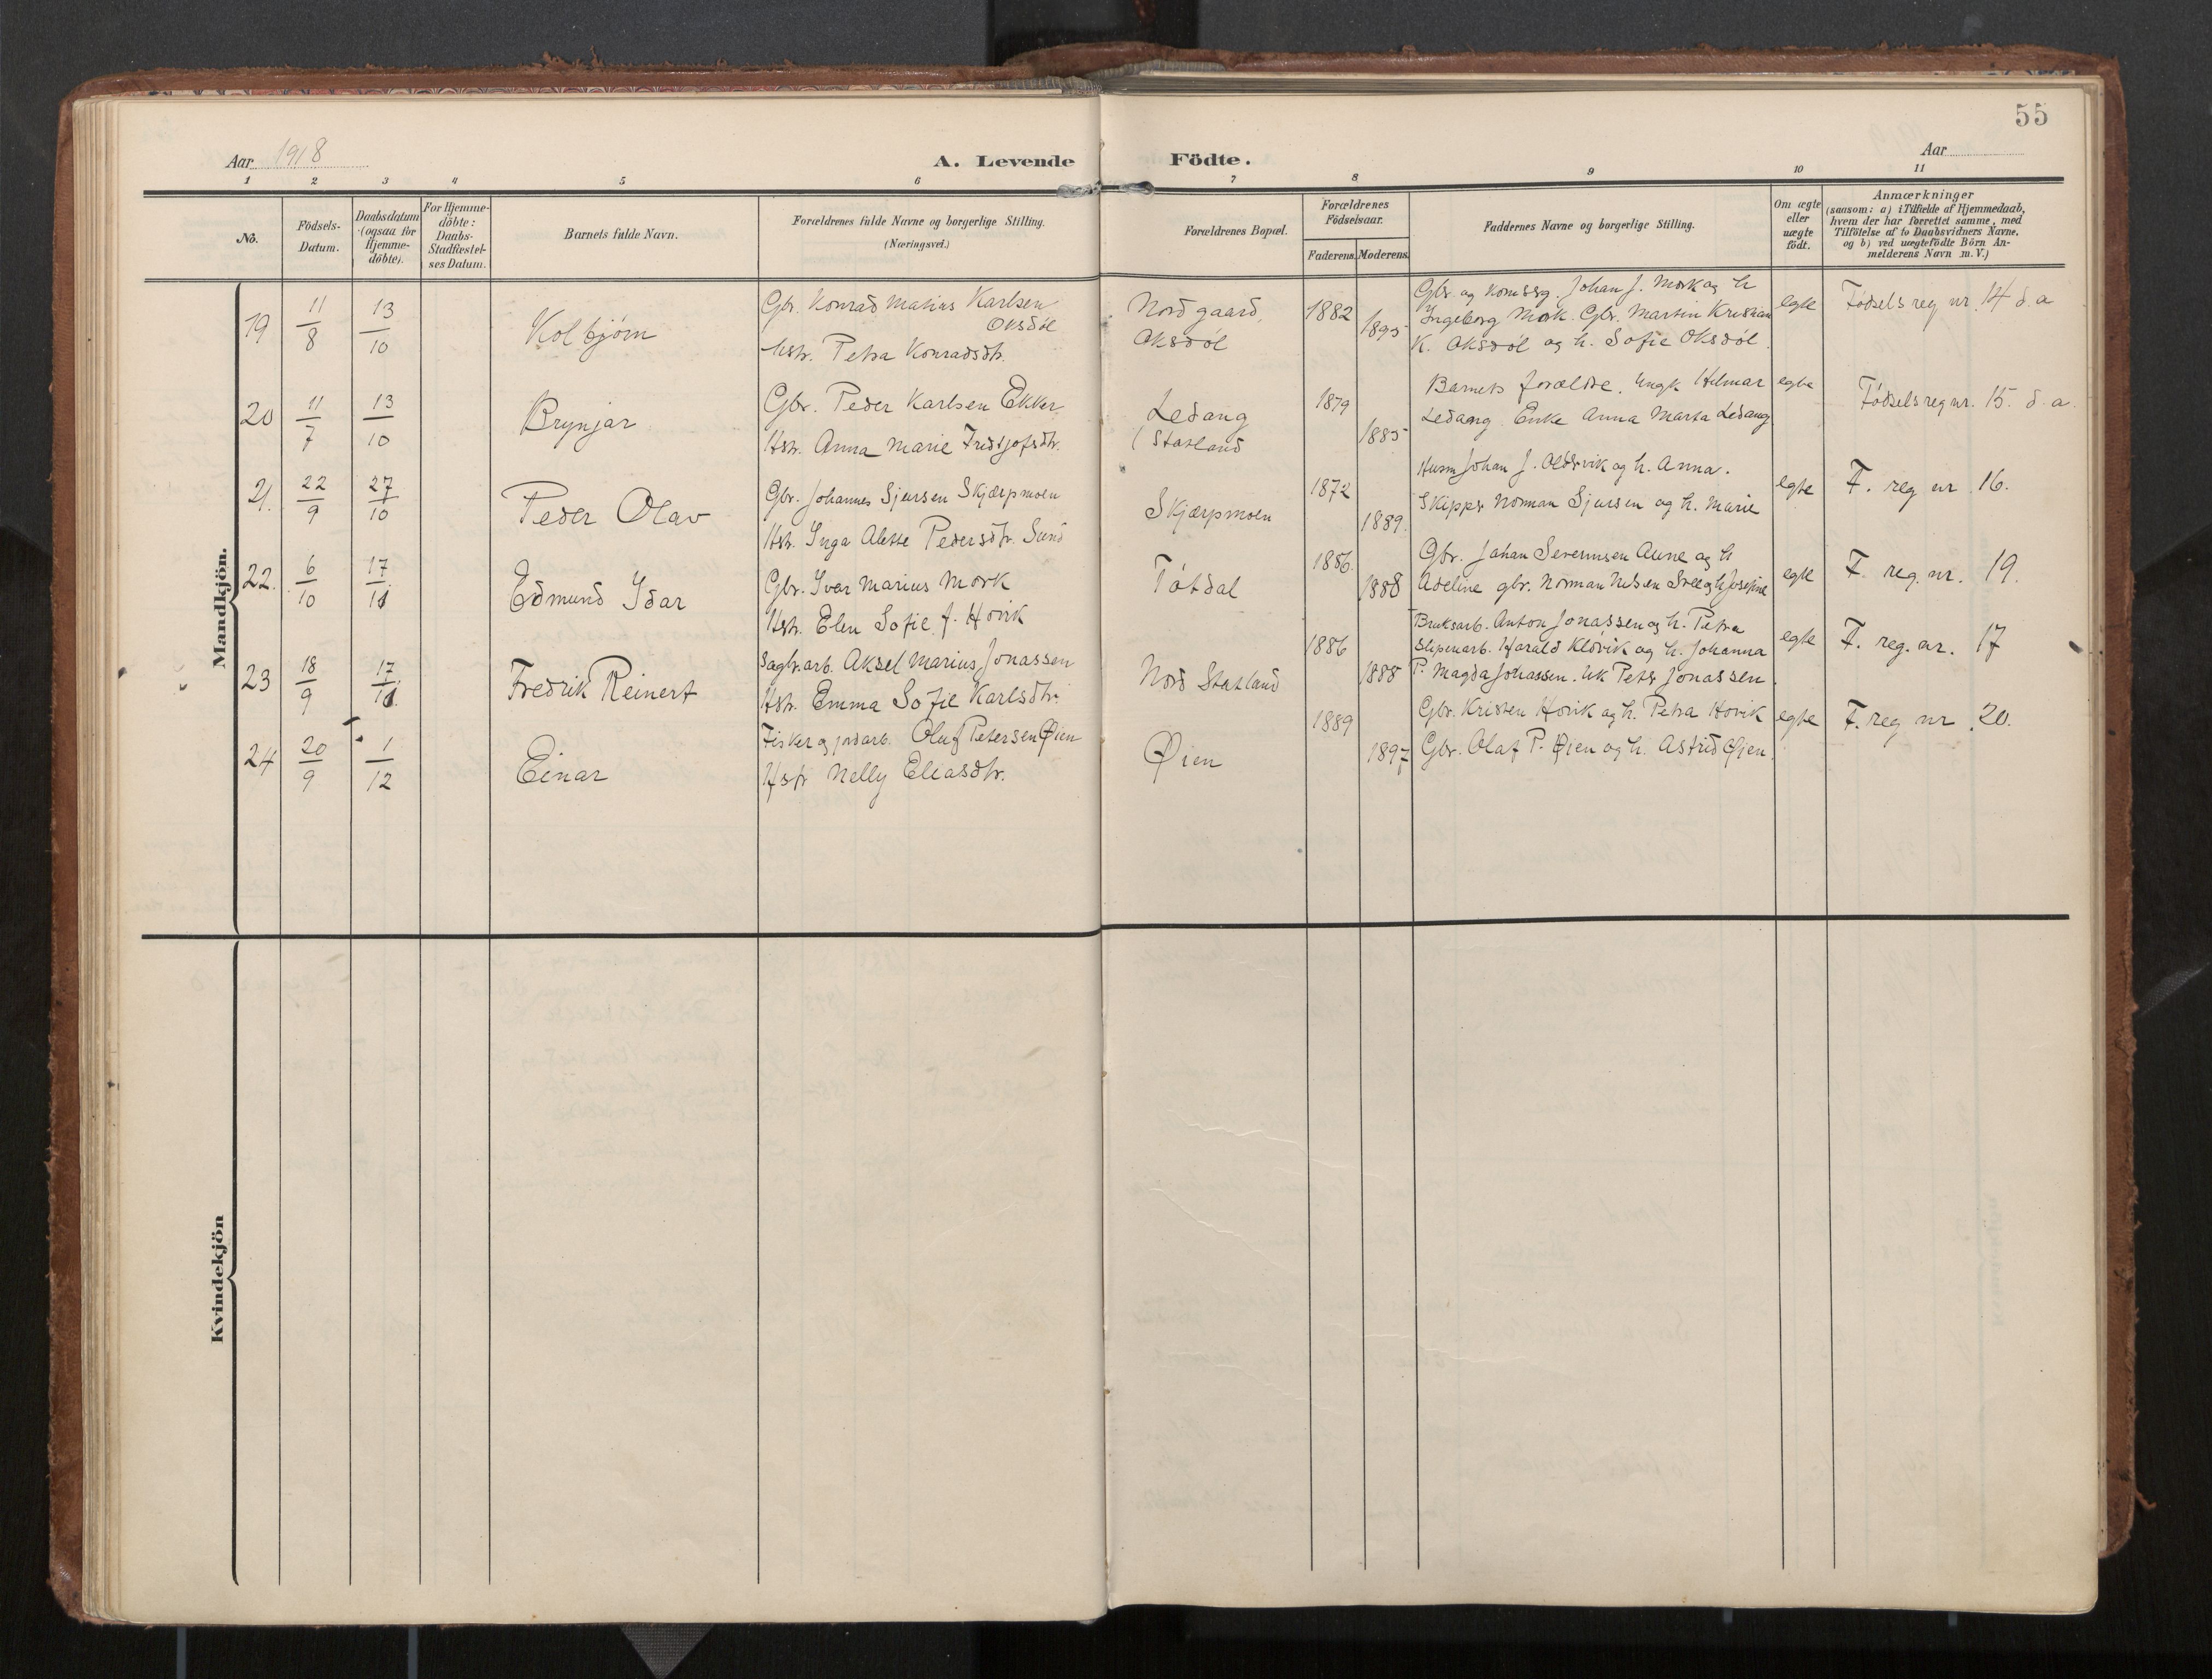 55
Aar 1918
A. Levende Födte.
Aar
1 2 3 4 5 6 7 8 9 10 11
No.
Födsels-Datum.
Daabsdatum (ogsaa for Hjemme-döbte).
For Hjemme-döbte: Daabs-Stadfæstel-ses Datum.
Barnets fulde Navn.
Forældrenes fulde Navne og borgerlige Stilling.
(Næringsvei.)
Forældrenes Bopæl.
Forældrenes Födselsaar.
Faderens. Moderens.
Faddernes Navne og borgerlige Stilling.
Om ægte eller uægte födt.
Anmærkninger
(saasom: a) i Tilfælde af Hjemmedaab,
hvem der har forrettet samme, med
Tilföielse af to Daabsvidners Navne,
og b) ved uægtefödte Börn An-
melderens Navn m. V.)
Mandkjön.
19 11/8 13/10 Kolbjørn
Gbr. Konrad Marius Karlsen
Oksdøl
hstr. Petra Konradsdtr.
Nordgaard,
Oksdøl
1882
1895
Gbr. og komssg. Johan J. Mork og h
Ingeborg Mork. Gbr. Martin Kristian
K. Oksdøl og h. Sofie Oksdøl.
egte
Fødselsreg nr. 14 d. a
20 11/7 13/10 Brynjar
Gbr. Peder Karlsen Ekker
Hstr. Anna Marie Fridtjofsdtr.
Ledang
(Statland
1879
1885
Barnets forældre. Ungk Hilmar
Ledang. Enke Anna Marta Ledang
egte
Fødselsreg nr. 15. d. a.
21. 22/9 27/10 Peder Olav
Gbr. Johannes Sjursen Skjærpmoen
Hstr. Inga Alette Pedersdtr. Sund
Skjærpmoen
1872
1889.
Husm Johan J. Oldervik og h. Anna.
Skipper Norman Sjursen og h. Marie
egte
F. reg nr 16.
22. 6/10 17/11 Edmund Idar
Gbr. Ivar Marius Mork
Hstr. Elen Sofie f. Hovik
Tøtdal
1886.
1888
Gbr. Johan Severinsen Aune og h
Adeline gbr. Norman Nilsen Sve og h Josefine
egte
F. reg. nr. 19.
23 18/9 17/11. Fredrik Reinert
Sagbr.arb. Aksel Marius Jonassen
Hstr. Emma Sofie Karlsdtr.
Nord Statland
1886
1888
Bruksarb. Anton Jonassen og h. Petra
Sliperiarb. Harald Kløvik og h. Johanna
P. Magda Johassen. Uk Peter Jonassen.
egte
F. reg. nr. 17
24 20/9 1/12 Einar
Fisker og jordarb. Oluf Petersen Øien
Hstr Nelly Eliasdtr.
Øien
1889
1897
Gbr. Kristen Hovik og h. Petra Hovik
Gbr. Olaf P. Øien og h. Astrid Øien.
egte
F. reg nr. 20.
Kvindekjön